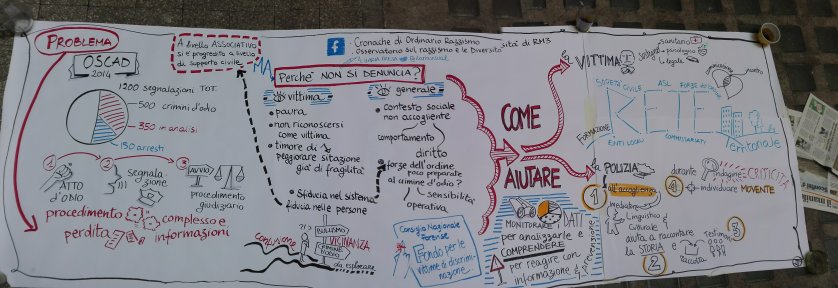 PROBLEMA
OSCAD
2014
1200 segnalazioni TOT.
500 crimini d'odio
350 in analisi
150 arresti
1
ATTO
d'odio
2
segnala
zione
3
AVVIO
procedimento
giudiziario
procedimento complesso e
perdita informazioni
A livello ASSOCIATIVO
si è progredito a livello
di supporto civile
MA
f
Cronache di Ordinario Razzismo
Osservatorio sul razzismo e le Diversità di RM3
Perche' NON SI DENUNCIA?
vittima
• paura
• non riconoscersi
come vittima
• timore di
peggiorare sitazione
già di fragilità
• Sfiducia nel sistema
fiducia nelle persone
generale
• contesto sociale
non accogliente
comportamento
diritto
• forze dell'ordine
poco preparate
al crimine d'odio?
Sensibilità
operativa
confusione
BULLISMO
VICINANZA
CRIMINE
D'ODIO
da esplorare
Consiglio Nazionale
Forense
Fondo per le
vittime di discrimi-
nazione
COME
AIUTARE
MONITORARE DATI
per analizzarli e
COMPRENDERE
per reagire con
informazione &
prevenzione
la VITTIMA
sanitario
psicologico
legale
SOCIETÀ CIVILE
ASL
FORZE
FORMAZIONE
RETE
territoriale
ENTI LOCALI
COMMISSARIATI
la POLIZIA
1
all'accoglienza
mediatore
Linguistico
Culturale
aiuta a raccontare
la STORIA
2
e
raccolta
testimoni
3
4
durante
indagine
CRITICITÀ
individuare MOVENTE